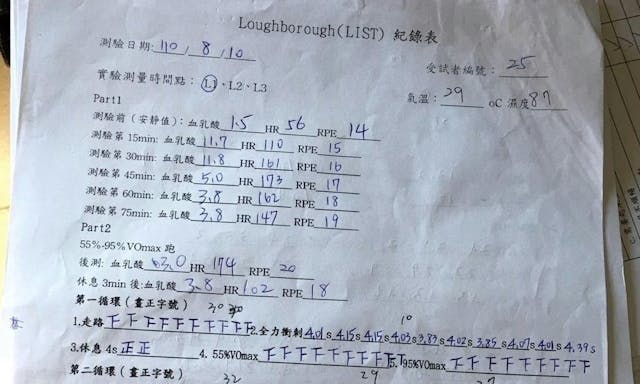 Loughborough(LIST) 紀錄表
測驗日期: 110 / 8 / 10
受試者編號： 25
實驗測量時間點：L1、L2、L3
氣溫： 29 oC 濕度 87
Part1
測驗前（安靜值）：血乳酸 1.5 HR 56 RPE 14
測驗第 15min: 血乳酸 11.7 HR 110 RPE 15
測驗第 30min: 血乳酸 11.8 HR 161 RPE 16
測驗第 45min: 血乳酸 5.0 HR 173 RPE 17
測驗第 60min: 血乳酸 3.8 HR 162 RPE 18
測驗第 75min: 血乳酸 3.8 HR 147 RPE 19
Part2
55%-95%VOmax 跑
後測: 血乳酸 3.0 HR 174 RPE 20
休息 3min 後:血乳酸 3.8 HR 102 RPE 18
第一循環（畫正字號） 30
10
1.走路 下下下下下下下下下下 2.全力衝刺 4.01s 4.15s 4.15s 4.03s 3.83s 4.02s 3.85s 4.07s 4.01s 4.39s
3.休息 4s 正正 4. 55%VOmax 下下下下下下下下下下 5. 95%VOmax 下下下下下下下下下下
第二循環（畫正字號） 32 29 27